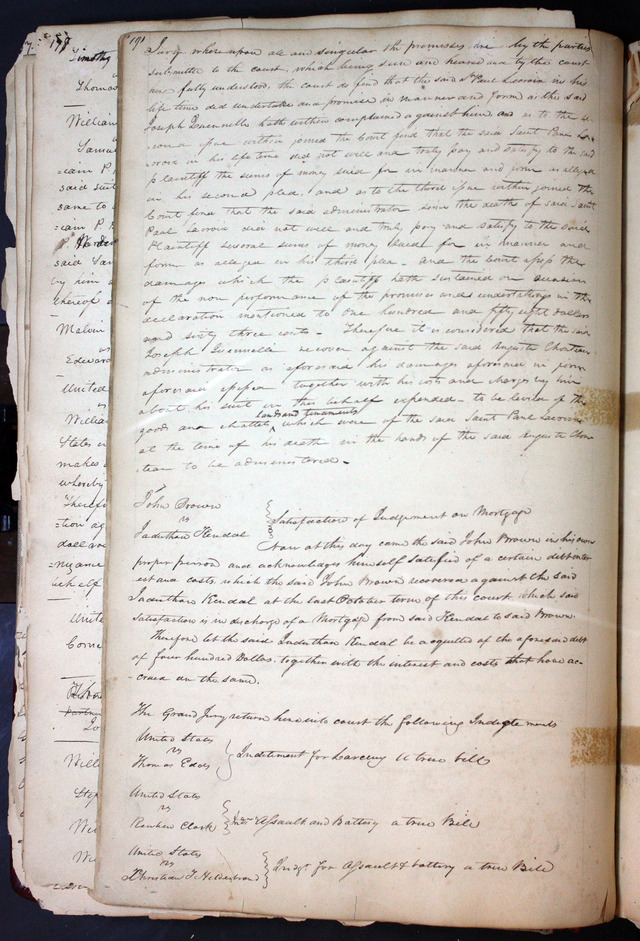 191
Jury whose upon all and singular the premises are by the parties
submitted to the court, which being seen and heard and by the court
and fully understood, the court do find that the said St Paul Lacroix in his
life time did undertake and promise in manner and form as the said
Joseph hath within complained against him and as to the se-
cond issue within joined the Court find that the said Saint Paul La-
croix in his life time did not well and truly pay and satisfy to the said
Plaintiff the sums of money sued for in manner and form as alleged
in his second plea. and as to the third issue within joined the
Court find that the said administrator since the death of said Saint
Paul Lacroix did not well and truly pay and satisfy to the said
Plaintiff several sums of money sued for in manner and
form as alleged in his third plea. And the Court assess the
damages which the plaintiff hath sustained on occasion
of the non performance of the promises and undertakings in the
declaration mentioned to One hundred and fifty eight dollars
and sixty three cents. Therefore it is considered that the said
Joseph recover against the said Auguste Chouteau
administrator as aforesaid his damages aforesaid in form
aforesaid assessed together with his costs and charges by him
about his suit in this behalf expended. to be levied of the
goods and chattels Lands and tenaments which were of the said Saint Paul Lacroix
at the time of his death in the hands of the said Auguste Chou-
teau to be administered.
John Brown
vs
Jaduthan Kendal
Satisfaction of Judgement on Mortgage
Now at this day came the said John Brown in his own
proper person and acknowledges himself satisfied of a certain debt inter-
est and costs, which the said John Brown recovered against the said
Jaduthan Kendal at the last October term of this court which said
satisfaction is in discharge of a Mortgage from said Kendal to said Brown.
Therefore let the said Jaduthan Kendal be acquitted of the aforesaid debt
of four hundred Dollars, together with the interest and costs that have ac-
crued on the same.
The Grand Jury return here into court the following Indictements
United States
vs
Thomas
Indictment for Larceny A true bill
United States
vs
Reuben Clark
Indt Assault and Battery a true Bill
United States
vs
Christian
Indigt for Assault & battery a true Bill
Timothy
Thomas
William
Samuel
said suit
same to
said Sam
by him
thereof
Melvin
vs
Edward
United
William
States
makes
whereby
Therefore
-tion ag
United